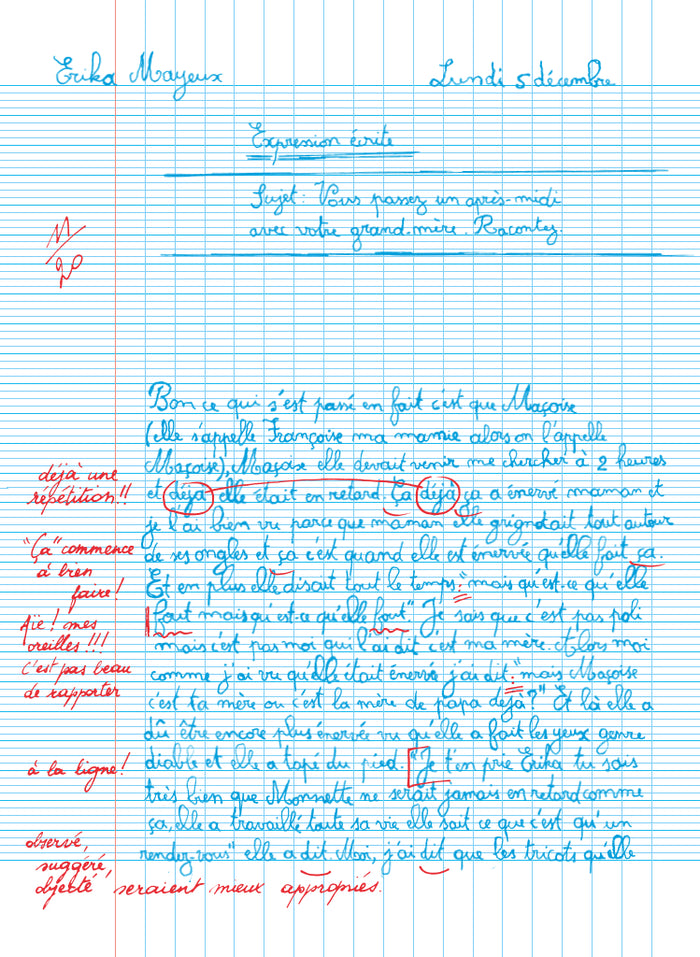 Erika Mayeux
Lundi 5 décembre
Expression écrite
Sujet : Vous passez un après-midi
avec votre grand-mère. Racontez.
11/20
Bon ce qui s'est passé en fait c'est que Maçoise
(elle s'appelle Françoise ma mamie alors on l'appelle
Maçoise), Maçoise elle devait venir me chercher à 2 heures
et déjà elle était en retard. Ça déjà ça a énervé maman et
je l'ai bien vu parce que maman elle grignotait tout autour
de ses ongles et ça c'est quand elle est énervée qu'elle fait ça.
Et en plus elle disait tout le temps : "mais qu'est-ce qu'elle
fout mais qu'est-ce qu'elle fout" Je sais que c'est pas poli
mais c'est pas moi qui l'ai dit c'est ma mère. Alors moi
comme j'ai vu qu'elle était énervé j'ai dit : "mais Maçoise
c'est ta mère ou c'est la mère de papa déjà ?" Et là elle a
dû être encore plus énervée vu qu'elle a fait les yeux genre
diable et elle a tapé du pied. "Je t'en prie Erika tu sais
très bien que Monnette ne serait jamais en retard comme
ça, elle a travaillé toute sa vie elle sait ce que c'est qu'un
rendez-vous" elle a dit. Moi, j'ai dit que les tricots qu'elle
déjà une
répétition !!
"Ça" commence
à bien
faire !
Aïe ! mes
oreilles !!!
C'est pas beau
de rapporter
à la ligne !
observé,
suggéré,
objecté seraient mieux appropriés.